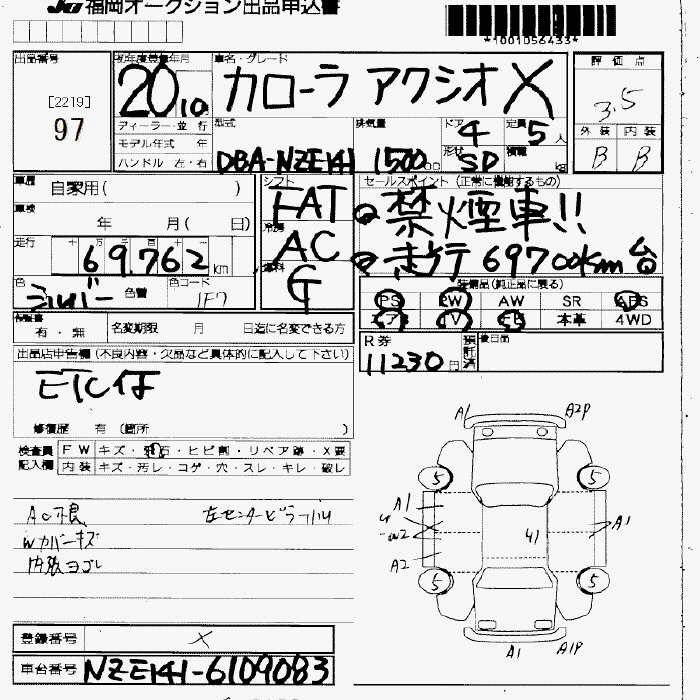 福岡オークション出品申込書
*1001056433*
出品番号
[2219]
97
初年度登録年月
20 10
車名・グレード
カローラ アクシオ X
ディーラー・並行
モデル年式 年
ハンドル 左・右
型式
DBA-NZE141
排気量
1500
ドア
4
形状
SD
定員
5人
積載
kg
評価点
3.5
外装 内装
B B
車歴
自家用( )
車検
年 月( 日)
走行
69,762 km
色
シルバー
色替
色コード
1F7
シフト
FAT
冷房
AC
燃料
G
セールスポイント (正常に機能するもの)
禁煙車!!
走行 69700km台
装備品(純正品に限る)
PS PW AW SR ABS
TV 本革 4WD
有・無
名変期限 月 日迄に名変できる方
R券
11230円
預託済
後日品
出品店申告欄(不良内容・欠品など具体的に記入して下さい)
ETC付
修復歴 有 (箇所 )
検査員記入欄
FW キズ・飛石・ヒビ割・リペア跡・X要
内装 キズ・汚レ・コゲ・穴・スレ・キレ・破レ
AC不良
左センターピラー
Wカバーキズ
内張ヨゴレ
A1 A2P
5 5
A1
A1
A2
5 5
A1 A1P
登録番号
X
車台番号
NZE141-6109083